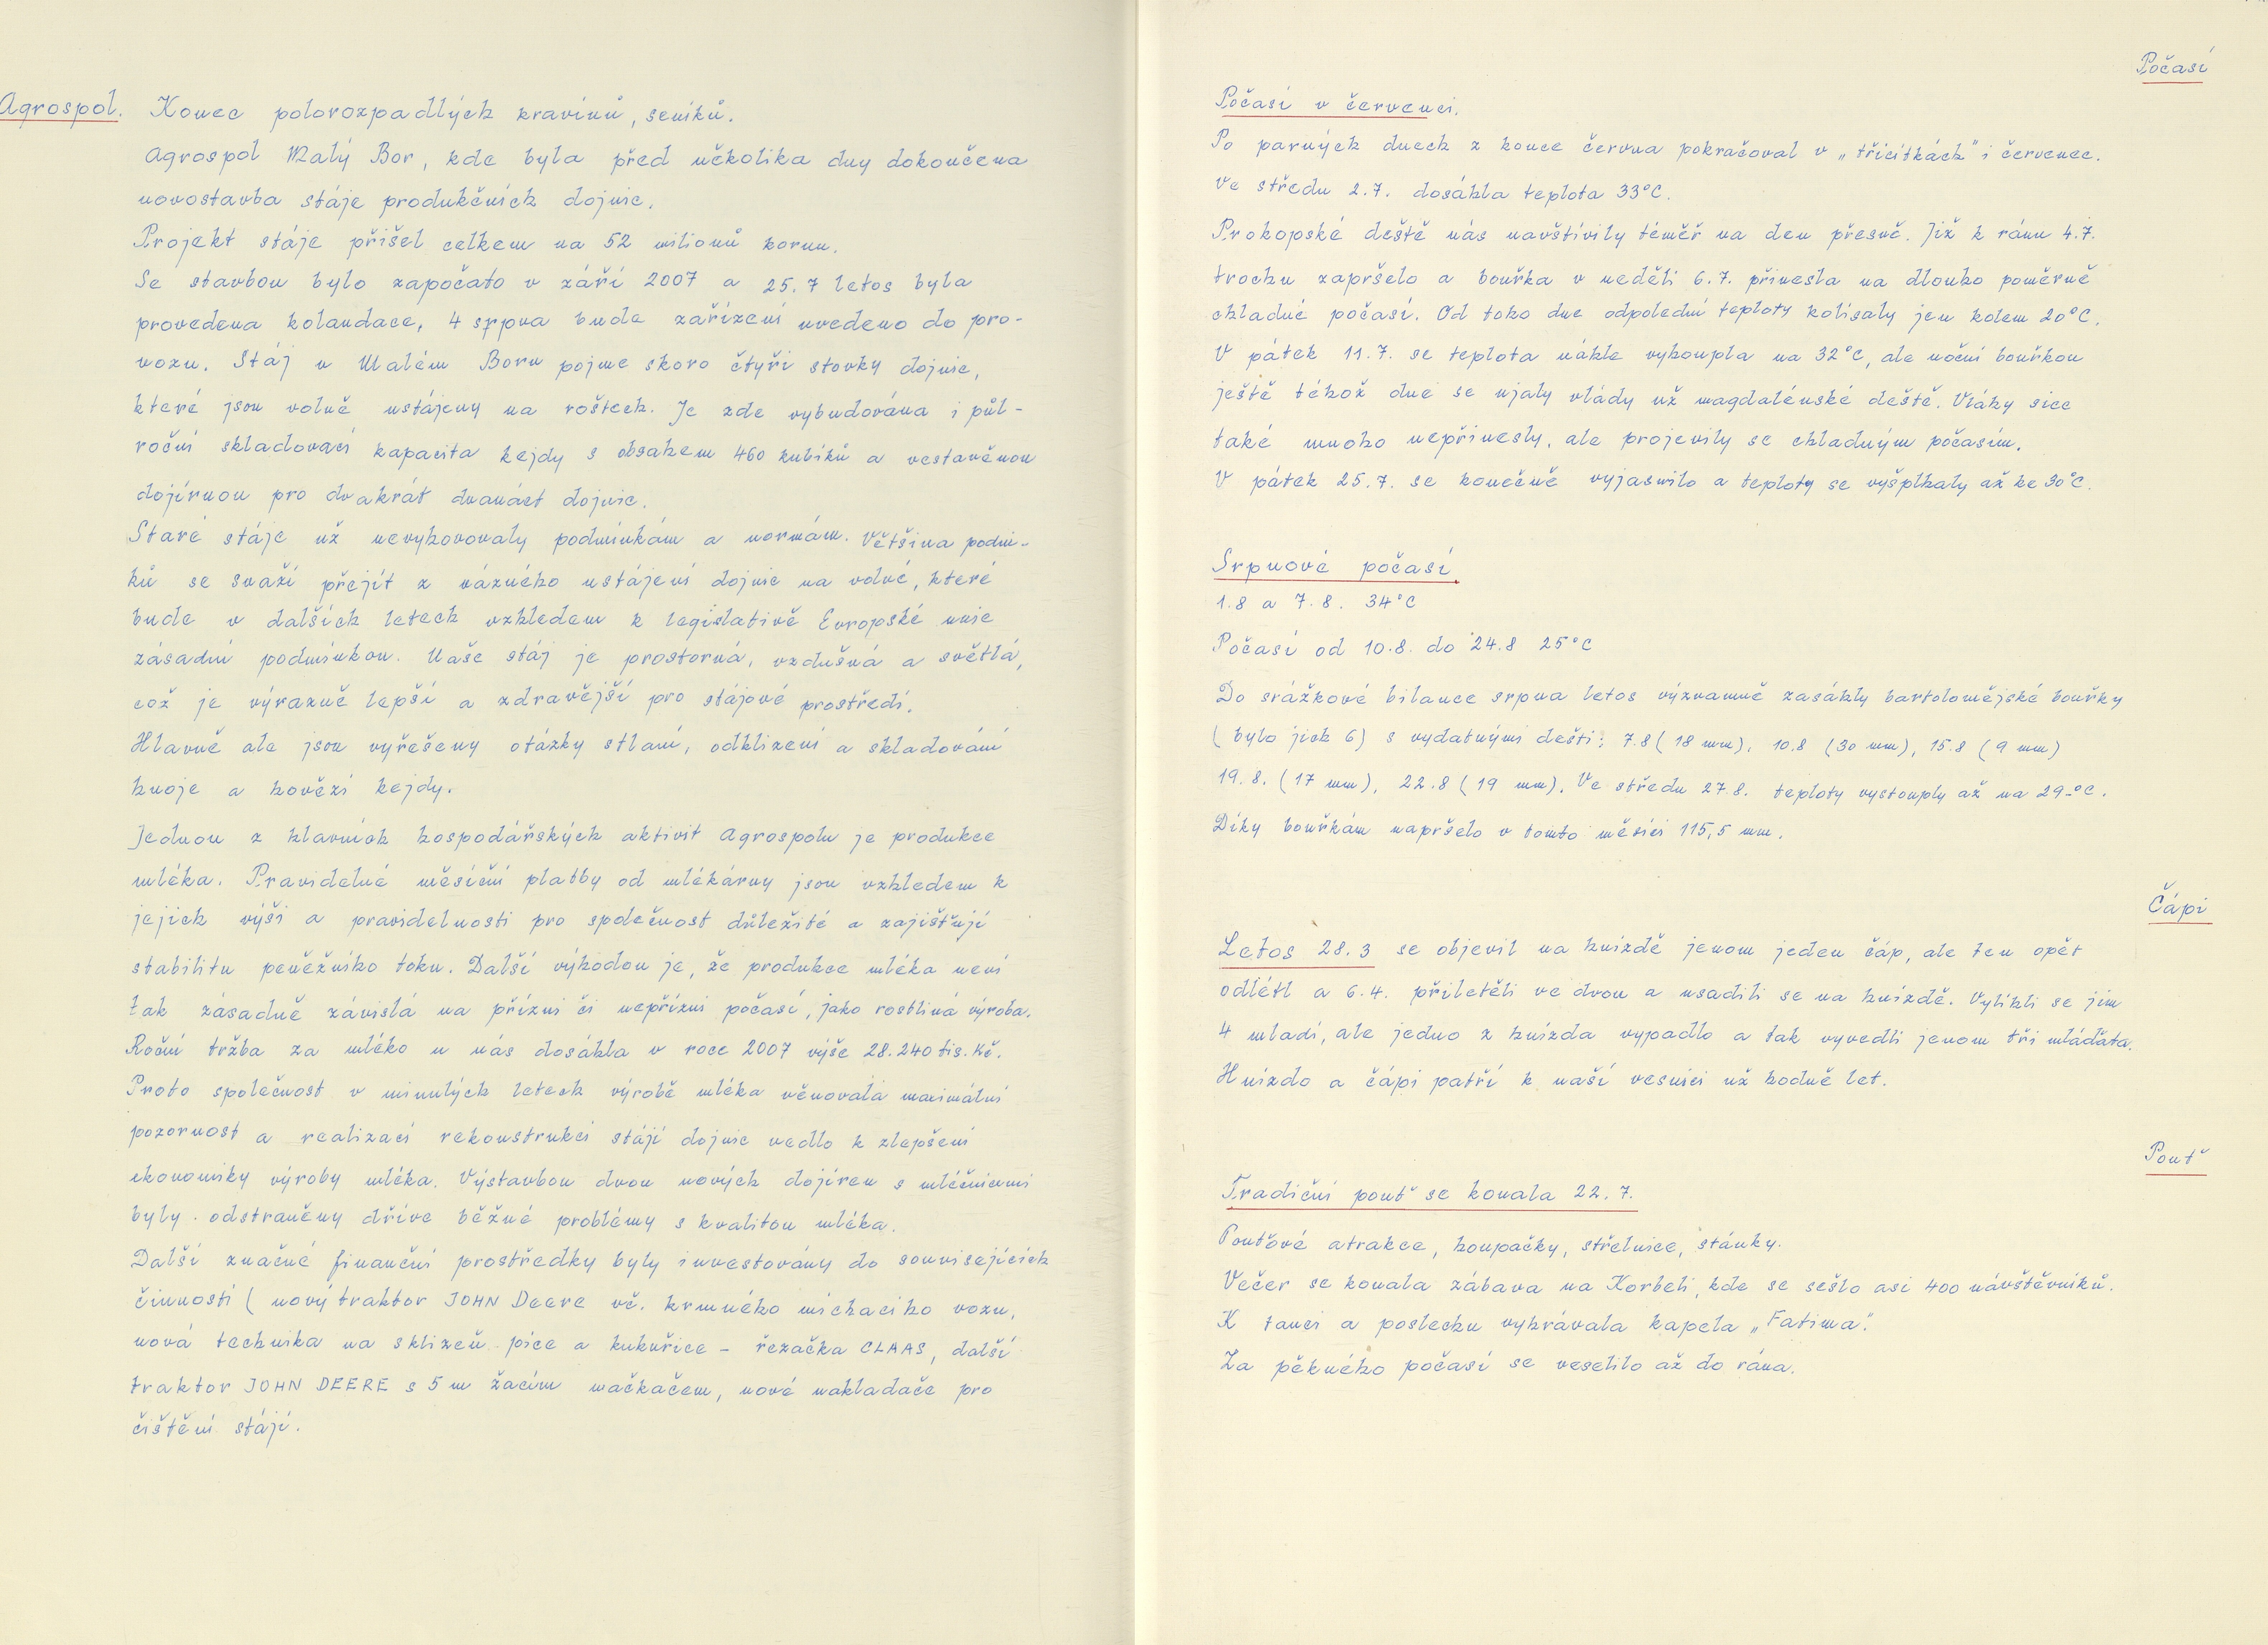 Agrospol.
Konec polorozpadlých kravínů, seníků.
Agrospol Malý Bor, kde byla před několika dny dokončena
novostavba stáje produkčních dojnic.
Projekt stáje přišel celkem na 52 milionů korun.
Se stavbou bylo započato v září 2007 a 25.7 letos byla
provedena kolaudace, 4 srpna bude zařízení uvedeno do pro-
vozu. Stáj v Malém Boru pojme skoro čtyři stovky dojnic,
které jsou volně ustájeny na roštech. Je zde vybudována i půl-
roční skladovací kapacita kejdy s obsahem 460 kubíků a vestavěnou
dojírnou pro dvakrát dvanáct dojnic.
Staré stáje už nevyhovovaly podmínkám a normám. Většina podni-
ků se snaží přejít z vázného ustájení dojnic na volné, které
bude v dalších letech vzhledem k legislativě Evropské unie
zásadní podmínkou. Naše stáj je prostorná, vzdušná a světlá,
což je výrazně lepší a zdravější pro stájové prostředí.
Hlavně ale jsou vyřešeny otázky stlaní, odklizení a skladování
hnoje a hovězí kejdy.
Jednou z hlavních hospodářských aktivit Agrospolu je produkce
mléka. Pravidelné měsíční platby od mlékárny jsou vzhledem k
jejich výši a pravidelnosti pro společnost důležité a zajišťují
stabilitu peněžního toku. Další výhodou je, že produkce mléka není
tak zásadně závislá na přízni či nepřízni počasí, jako rostliná výroba.
Roční tržba za mléko u nás dosáhla v roce 2007 výše 28.240 tis. Kč.
Proto společnost v minulých letech výrobě mléka věnovala maximální
pozornost a realizací rekonstrukcí stájí dojnic vedlo k zlepšení
ekonomiky výroby mléka. Výstavbou dvou nových dojíren s mléčnicemi
byly odstraněny dříve běžné problémy s kvalitou mléka.
Další značné finanční prostředky byly investovány do souvisejících
činností (nový traktor JOHN Deere vč. krmného míchacího vozu,
nová technika na sklizeň píce a kukuřice - řezačka CLAAS, další
traktor JOHN DEERE s 5 m žacím mačkačem, nové nakladače pro
čištění stájí.
Počasí
Počasí v červenci.
Po parných dnech z konce června pokračoval v „třicítkách" i červenec.
Ve středu 2.7. dosáhla teplota 33°C.
Prokopské deště nás navštívily téměř na den přesně. Již k ránu 4.7.
trochu zapršelo a bouřka v neděli 6.7. přinesla na dlouho poměrně
chladné počasí. Od toho dne odpolední teploty kolísaly jen kolem 20°C.
V pátek 11.7. se teplota náhle vyhoupla na 32°C, ale noční bouřkou
ještě téhož dne se ujaly vlády už magdalénské deště. Vláhy sice
také mnoho nepřinesly, ale projevily se chladným počasím.
V pátek 25.7. se konečně vyjasnilo a teploty se vyšplhaly až ke 30°C.
Srpnové počasí.
1.8 a 7.8. 34°C
Počasí od 10.8. do 24.8 25°C
Do srážkové bilance srpna letos významně zasáhly bartolomějské bouřky
(bylo jich 6) s vydatnými dešti: 7.8 (18 mm), 10.8 (30 mm), 15.8 (9 mm)
19.8. (17 mm), 22.8 (19 mm). Ve středu 27.8. teploty vystouply až na 29°C.
Díky bouřkám napršelo v tomto měsíci 115,5 mm.
Čápi
Letos 28.3 se objevil na hnízdě jenom jeden čáp, ale ten opět
odlétl a 6.4. přiletěli ve dvou a usadili se na hnízdě. Vylíhli se jim
4 mladí, ale jedno z hnízda vypadlo a tak vyvedli jenom tři mláďata.
Hnízdo a čápi patří k naší vesnici už hodně let.
Pouť
Tradiční pouť se konala 22.7.
Pouťové atrakce, houpačky, střelnice, stánky.
Večer se konala zábava na Korbeli, kde se sešlo asi 400 návštěvníků.
K tanci a poslechu vyhrávala kapela „Fatima".
Za pěkného počasí se veselilo až do rána.